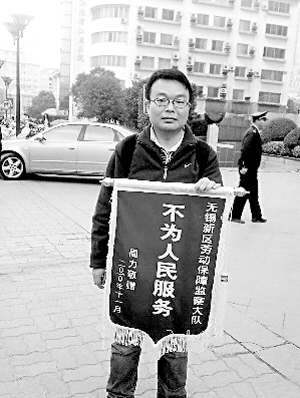 无锡新区劳动保障监察大队
不为人民服务
周力敬赠
年十一月